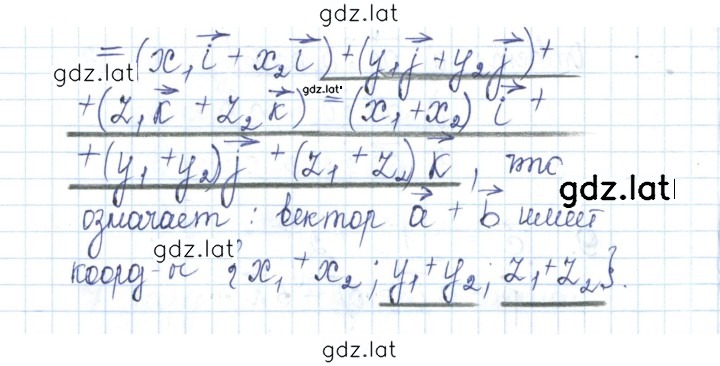 gdz.lat
= (x₁i⃗ + x₂i⃗) + (y₁j⃗ + y₂j⃗) +
gdz.lat
+ (z₁k⃗ + z₂k⃗) = (x₁ + x₂) i⃗ +
gdz.lat
+ (y₁ + y₂) j⃗ + (z₁ + z₂) k⃗, что
gdz.lat
означает: вектор a⃗ + b⃗ имеет
gdz.lat
коорд-ы {x₁ + x₂; y₁ + y₂; z₁ + z₂}.
gdz.lat